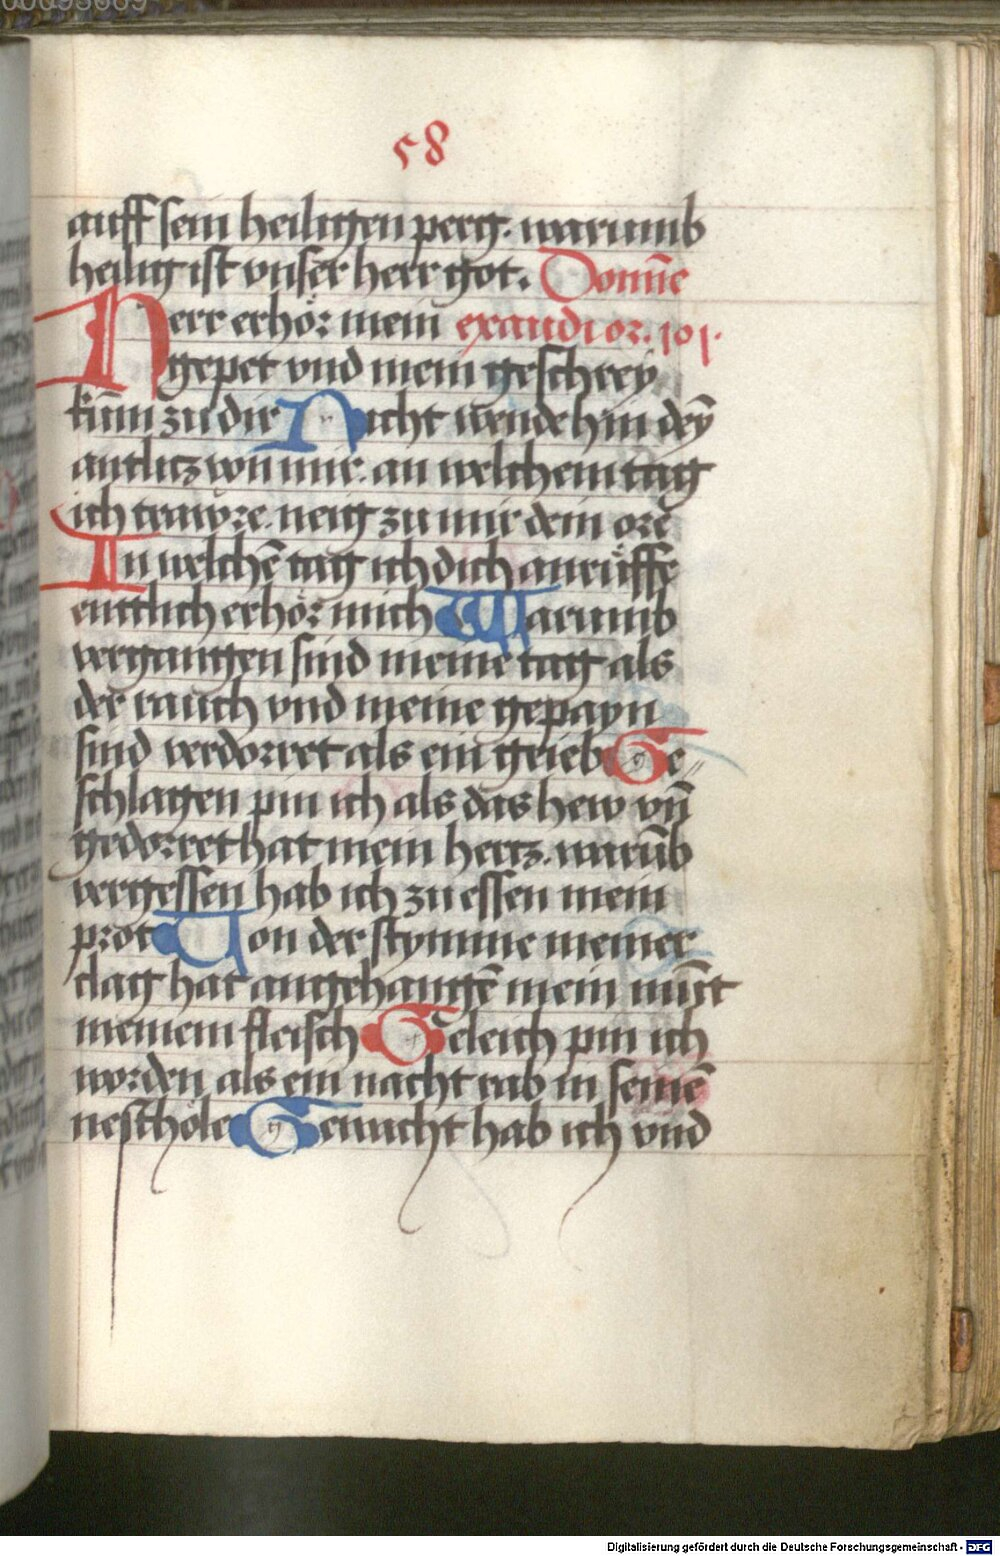 58
auff sein heiligen perg. warumb
heilig ist vnser herr got. Domīe
Herr erhör mein exaudi or. 101.
gepet vnd mein geschrey
kūm zu dir Nicht wende hin deÿ
antlitz von mir. an welchem tag
ich trawre. neig zu mir dein ore
In welchē tag ich dich anrüffe
entlich erhör mich Warumb
vergangen sind meine tag als
der rauch vnd meine gepayn
sind verdorret als ein grieb Ge
schlagen pin ich als das hew vn̄
gedorret hat mein hertz. warūb
vergessen hab ich zu essen mein
prot Von der stymme meiner
clag hat angehangē mein mūt
meinem fleisch Geleich pin ich
worden als ein nacht rab in seinē
nesthöle Gewacht hab ich vnd
Digitalisierung gefördert durch die Deutsche Forschungsgemeinschaft - DFG